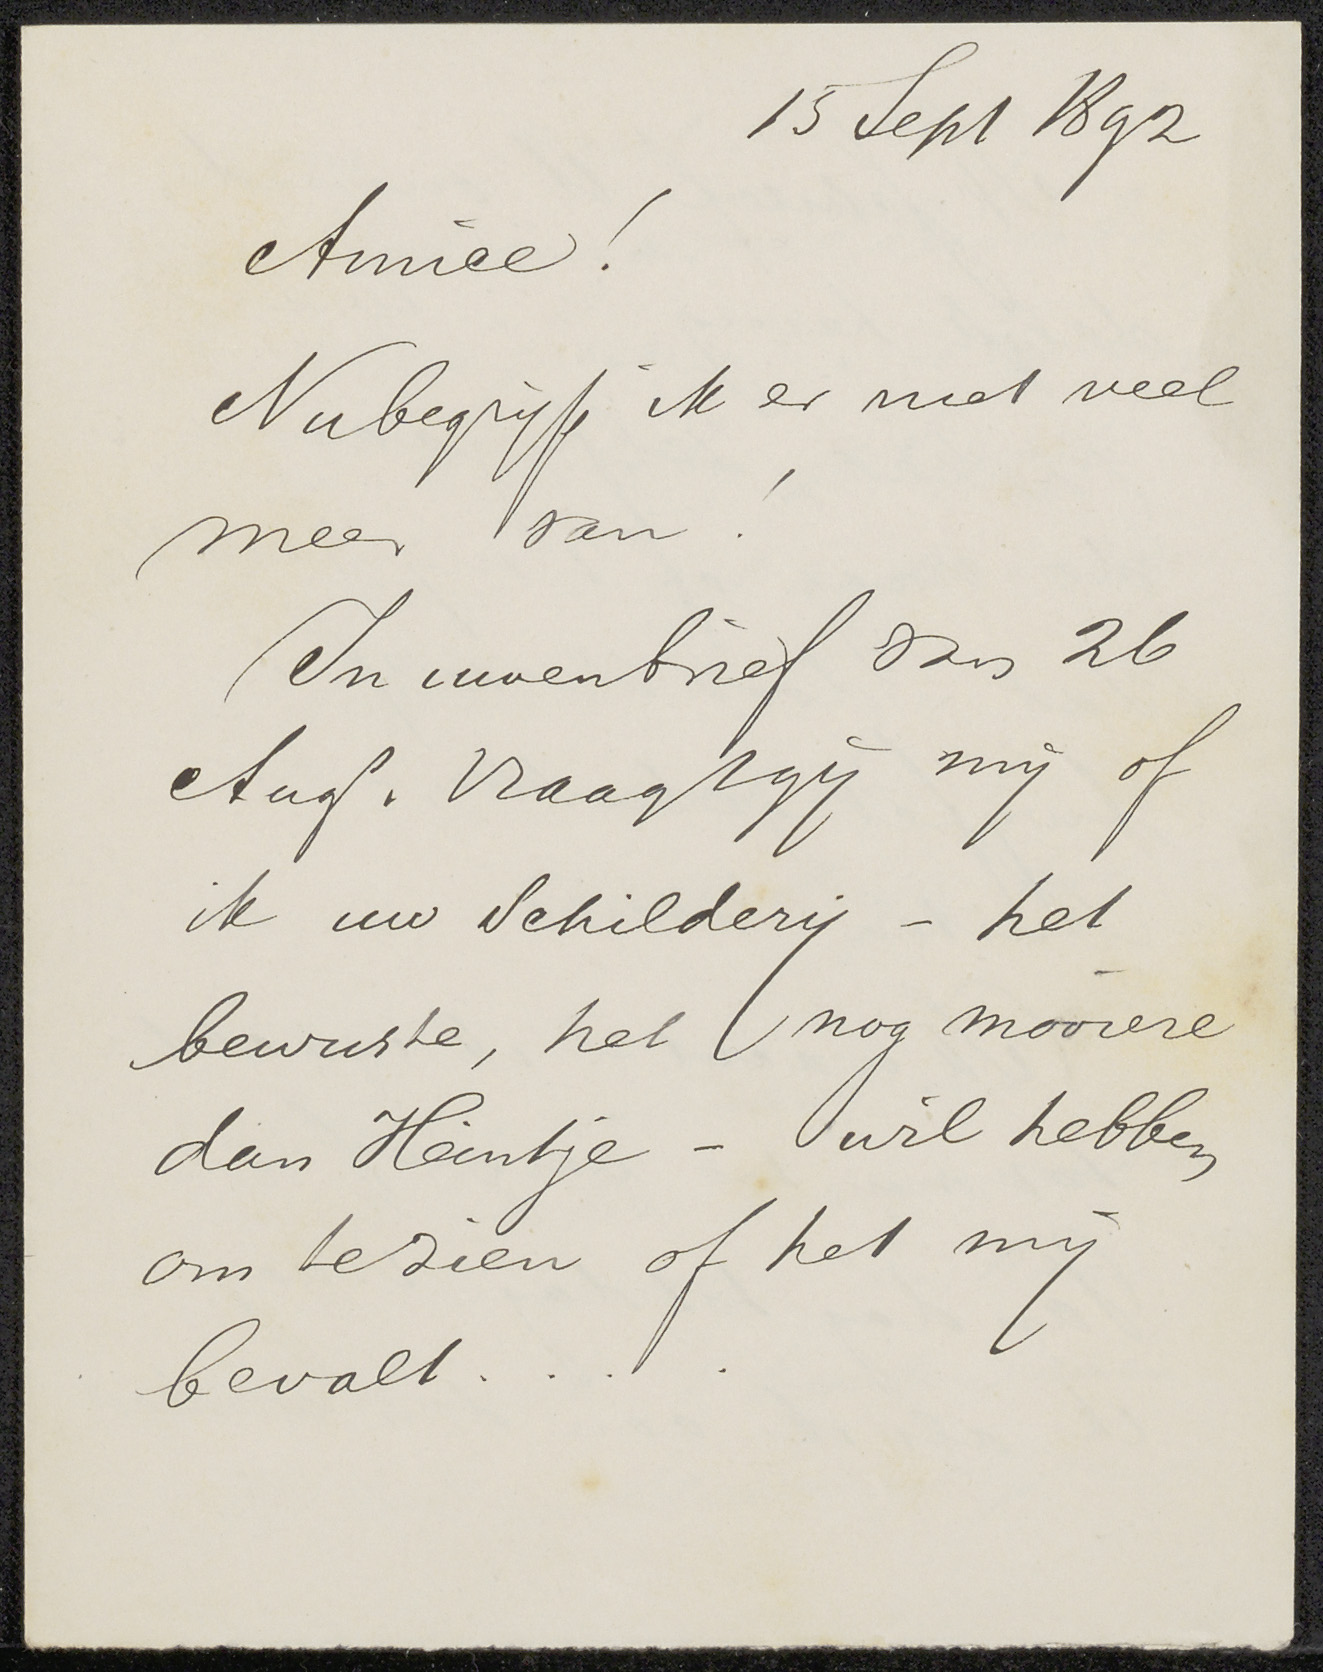 15 Sept 1892
Amice!
Nu begrijp ik er niet veel
meer van!
In uwen brief van 26
Aug. vraagt gij mij of
ik uw Schilderij - het
bewuste, het nog mooiere
dan Heintje - wil hebben
om te zien of het mij
bevalt....